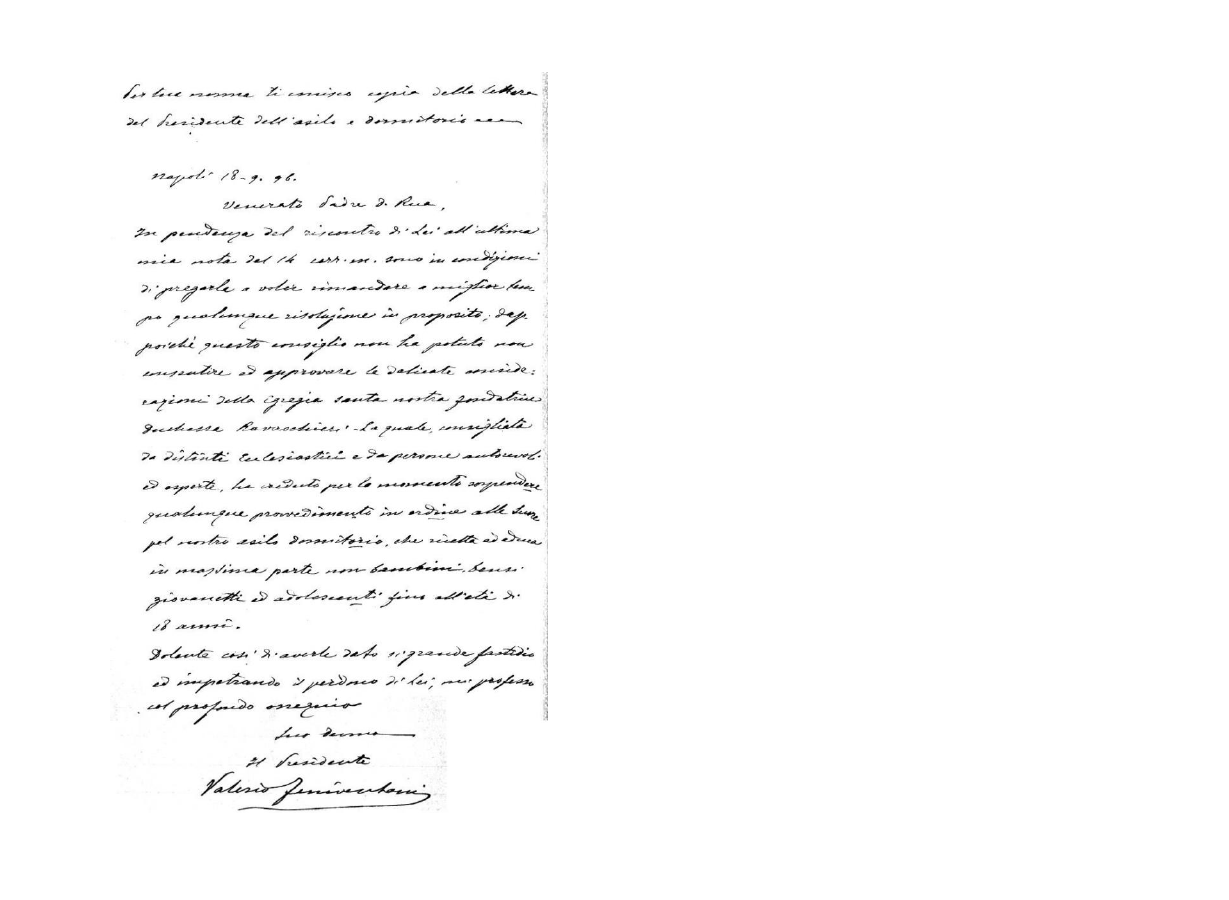 Per tua norma ti unisco copia della lettera
del Presidente dell'asilo e dormitorio
Napoli 18-9. 96.
Venerato Padre d. Rua,
In pendenza del riscontro di Lei all'ultima
mia nota del 14 corr. m. sono in condizioni
di pregarla a voler rimandare a miglior tem
po qualunque risoluzione in proposito; dap
poichè questo consiglio non ha potuto non
consentire ed approvare le delicate conside:
razioni della egregia santa nostra fondatrice
Duchessa Ravaschieri. La quale, consigliata
da distinti Ecclesiastici e da persone autorevoli
ed esperte, ha creduto per lo momento sospendere
qualunque provvedimento in ordine alle Suore
pel nostro asilo dormitorio, che ricetta ed educa
in massima parte non bambini, bensi
giovanetti ed adolescenti fino all'età di
18 anni.
Dolente così di averle dato sì grande fastidio
ed impetrando il perdono di Lei, mi professo
col profondo ossequio
Suo
Il Presidente
Valerio